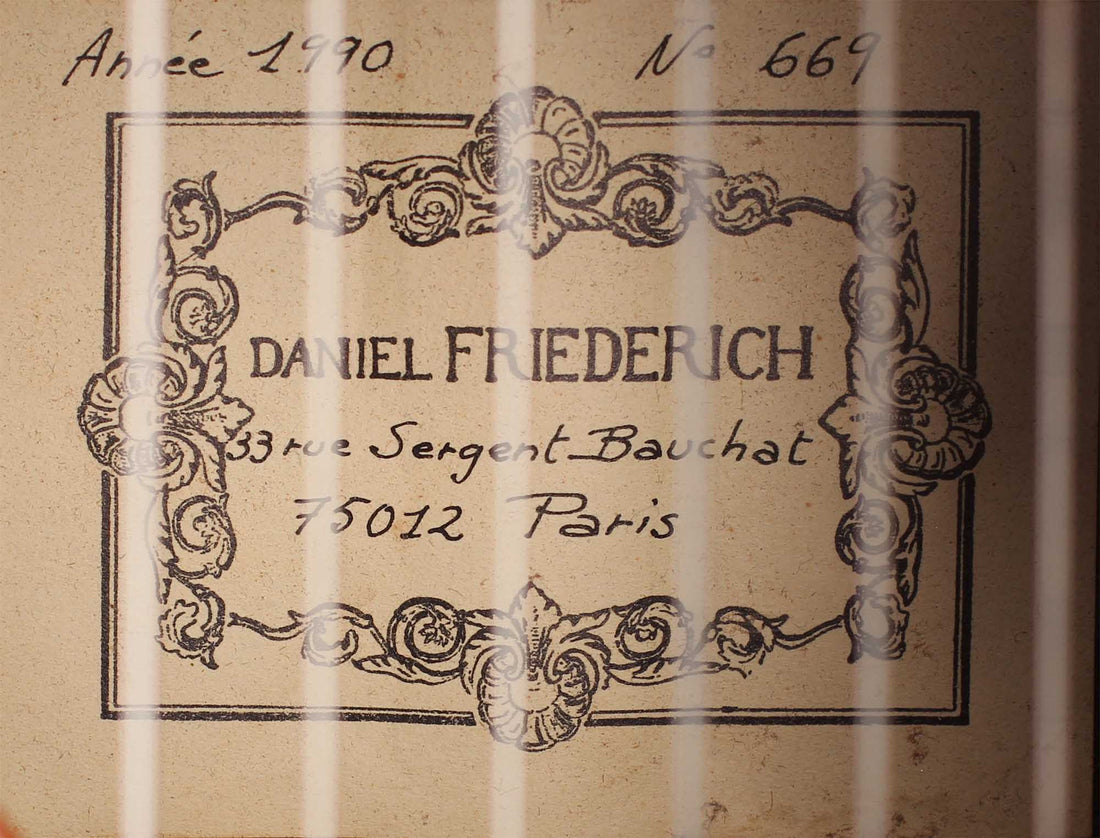 Année 1990 No 669
DANIEL FRIEDERICH
33 rue Sergent Bauchat
75012 Paris